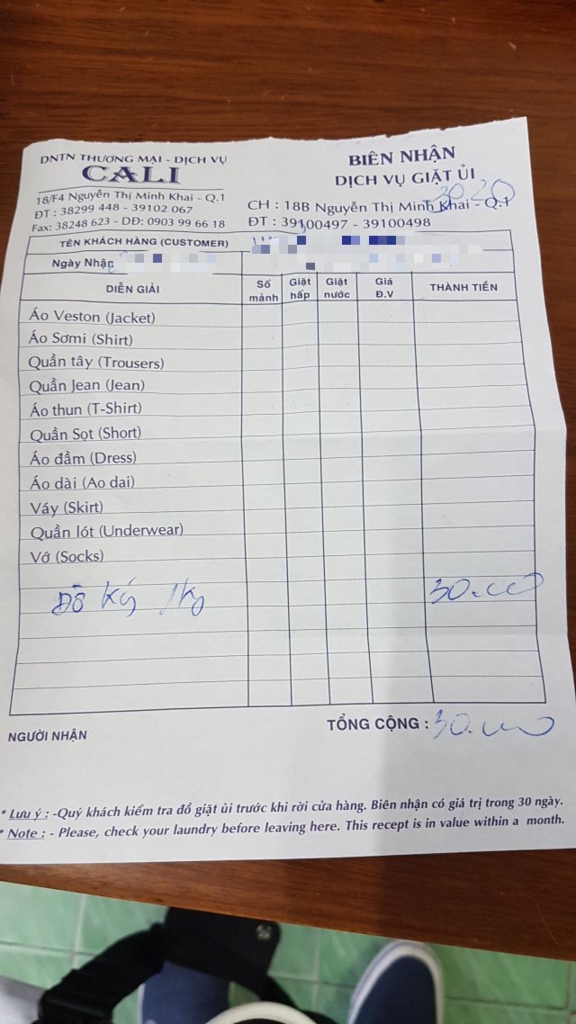 DNTN THƯƠNG MẠI - DỊCH VỤ
CALI
18/F4 Nguyễn Thị Minh Khai - Q.1
ĐT : 38299 448 - 39102 067
Fax: 38248 623 - DĐ: 0903 99 66 18
BIÊN NHẬN
DỊCH VỤ GIẶT ỦI
CH : 18B Nguyễn Thị Minh Khai - Q.1
ĐT : 39100497 - 39100498
TÊN KHÁCH HÀNG (CUSTOMER)
Ngày Nhận
DIỄN GIẢI Số mảnh Giặt hấp Giặt nước Giá Đ.V THÀNH TIỀN
Áo Veston (Jacket)
Áo Sơmi (Shirt)
Quần tây (Trousers)
Quần Jean (Jean)
Áo thun (T-Shirt)
Quần Sọt (Short)
Áo đầm (Dress)
Áo dài (Ao dai)
Váy (Skirt)
Quần lót (Underwear)
Vớ (Socks)
Đồ Ký 1kg 30.000
TỔNG CỘNG : 30.000
NGƯỜI NHẬN
* Lưu ý : -Quý khách kiểm tra đồ giặt ủi trước khi rời cửa hàng. Biên nhận có giá trị trong 30 ngày.
* Note : - Please, check your laundry before leaving here. This recept is in value within a month.